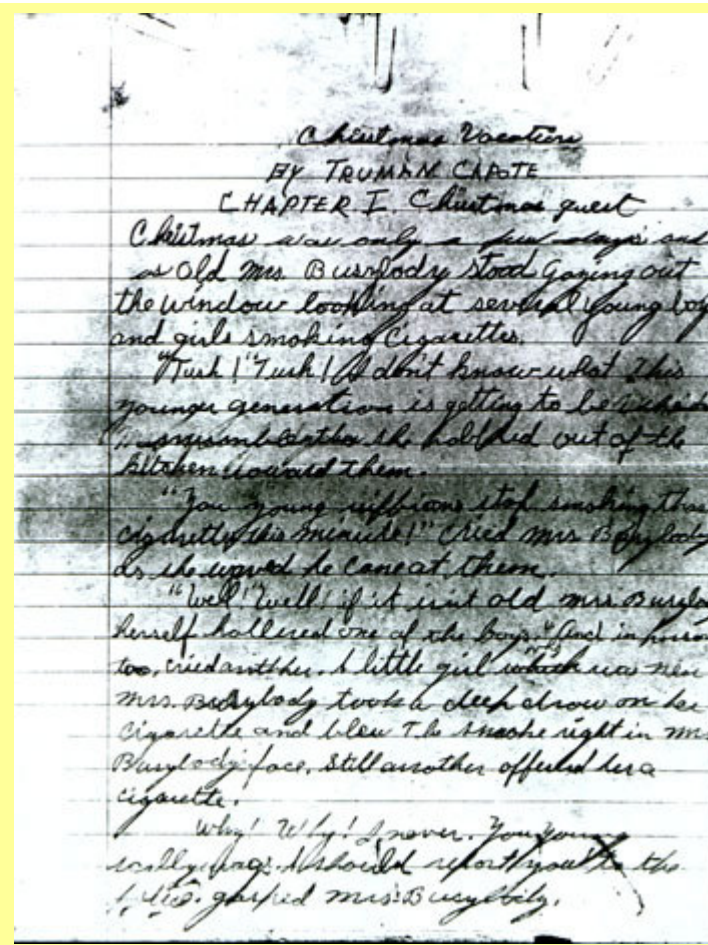 Christmas Vacation
BY TRUMAN CAPOTE
CHAPTER I. Christmas guest
Christmas was only a few days and
as old Mrs. Busybody stood gazing out
the window looking at several young boy
and girls smoking cigarettes.
"Tush! "Tush! I don't know what this
younger generation is getting to be
she hobbled out of the
kitchen toward them.
"You young ruffions stop smoking thos
cigaretts this minute!" cried Mrs Busybody
as she waved he cane at them.
"Well! Well! if it isn't old mrs. Busybo
herself hollered one of the boys. "And in person
too, cried another. A little girl was near
Mrs. Busybody took a deep drow on her
cigarette and blew the smoke right in mrs
Busybody face. Still another offered her a
cigarette.
Why! Why! I never. You young
I should report you to the
gasped Mrs. Busybody.